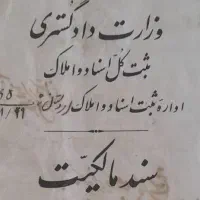 وزارت دادگستری
ثبت کل اسناد و املاک
اداره ثبت اسناد و املاک
سند مالکیت